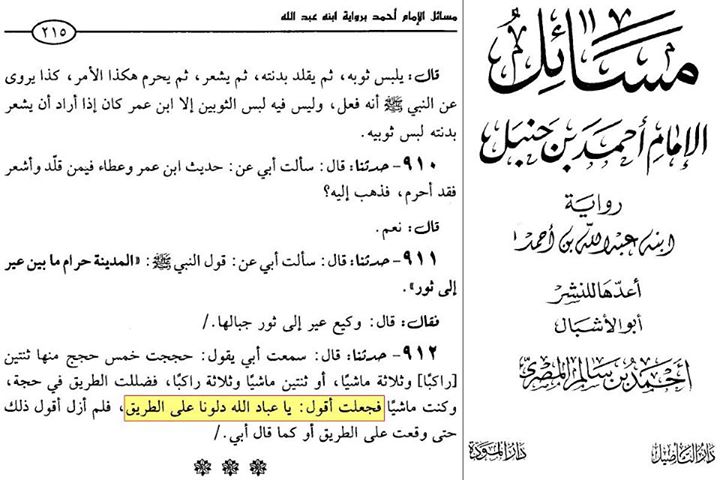 مسائل الإمام أحمد برواية ابنه عبد الله
٢١٥
قال: يلبس ثوبه، ثم يقلد بدنته، ثم يشعر، ثم يحرم هكذا الأمر، كذا يروى
عن النبي ﷺ أنه فعل، وليس فيه لبس الثوبين إلا ابن عمر كان إذا أراد أن يشعر
بدنته لبس ثوبيه.
٩١٠- حدثنا: قال: سألت أبي عن: حديث ابن عمر وعطاء فيمن قلّد وأشعر
فقد أحرم، فذهب إليه؟
قال: نعم.
٩١١- حدثنا: قال: سألت أبي عن: قول النبي ﷺ: «المدينة حرام ما بين عير
إلى ثور».
فقال: قال: وكيع عير إلى ثور جبالها./
٩١٢- حدثنا: قال: سمعت أبي يقول: حججت خمس حجج منها ثنتين
[راكبًا] وثلاثة ماشيًا، أو ثنتين ماشيًا وثلاثة راكبًا، فضللت الطريق في حجة،
وكنت ماشيًا فجعلت أقول: يا عباد الله دلونا على الطريق، فلم أزل أقول ذلك
حتى وقعت على الطريق أو كما قال أبي./
مسائل
الإمام أحمد بن حنبل
رواية
ابنه عبد الله بن أحمد
أعدها للنشر
أبو الأشبال
أحمد بن سالم المصري
دار التأصيل
دار المودة